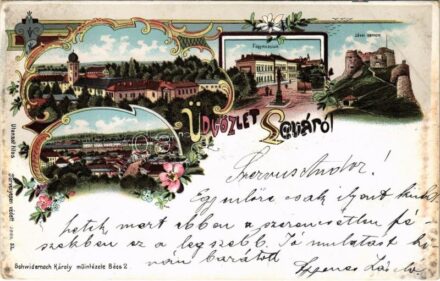 Főgymnasium
Lévai várrom
ÜDVÖZLET Léváról
Servus Andor!
Egyenlőre csak ilyent küld-
hetek, mert ebben a szerencsétlen fé-
szekben ez a legszebb. Jó mulatást ki-
ván barátod
László
Schwidernoch Károly müintézete Bécs 2.